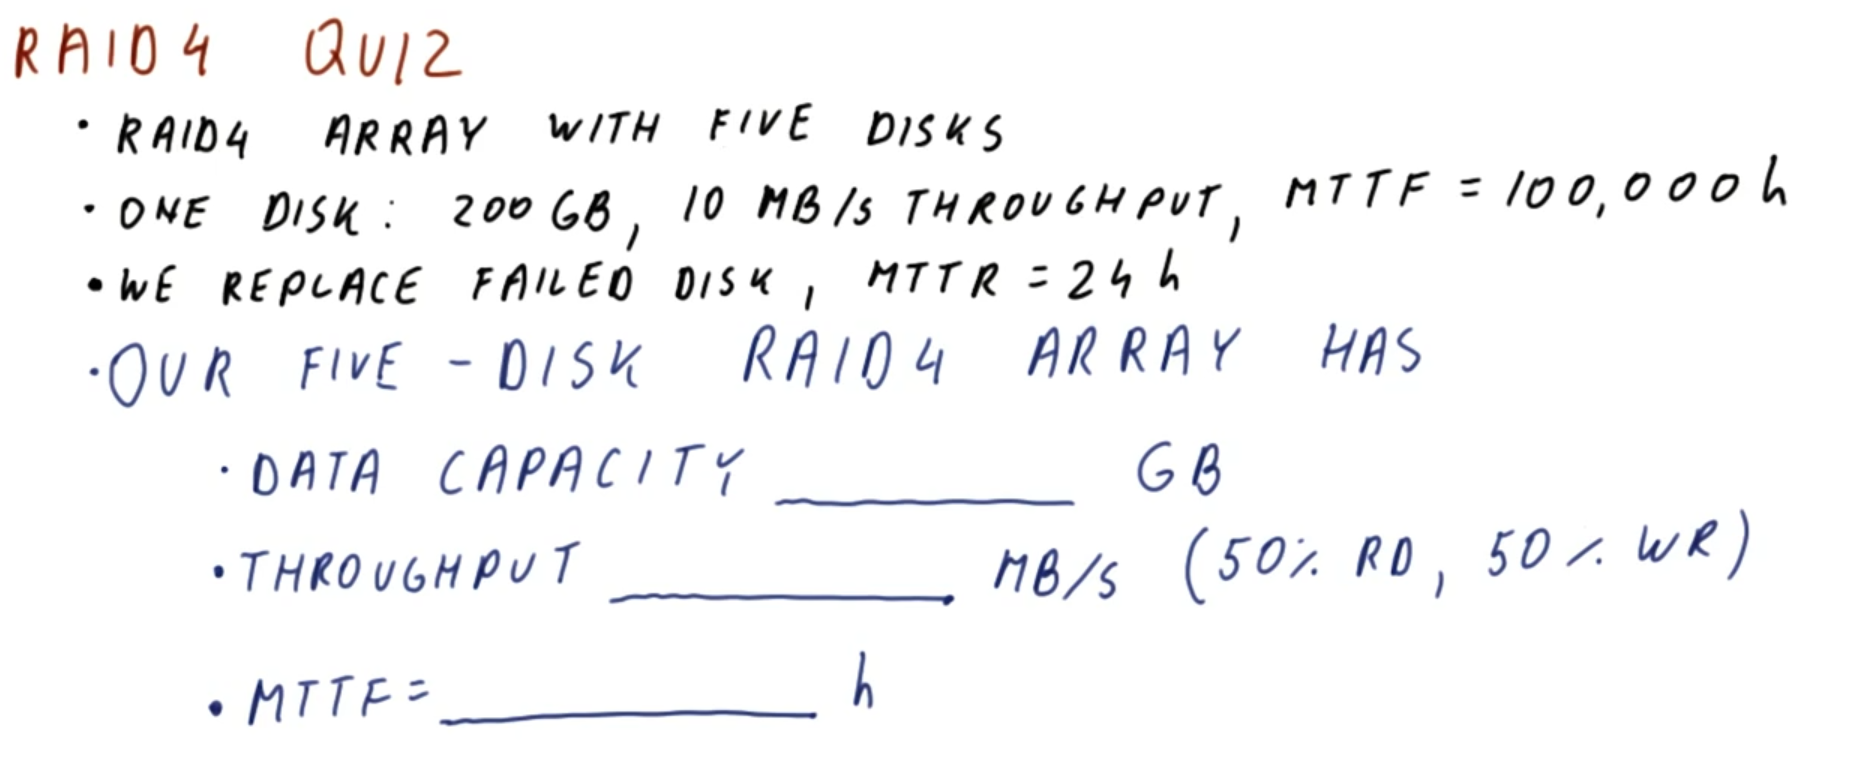 RAID4 QUIZ
• RAID4 ARRAY WITH FIVE DISKS
• ONE DISK: 200 GB, 10 MB/s THROUGHPUT, MTTF = 100,000 h
• WE REPLACE FAILED DISK, MTTR = 24 h
• OUR FIVE-DISK RAID4 ARRAY HAS
• DATA CAPACITY ______ GB
• THROUGHPUT ______ MB/s (50% RD, 50% WR)
• MTTF = ______ h